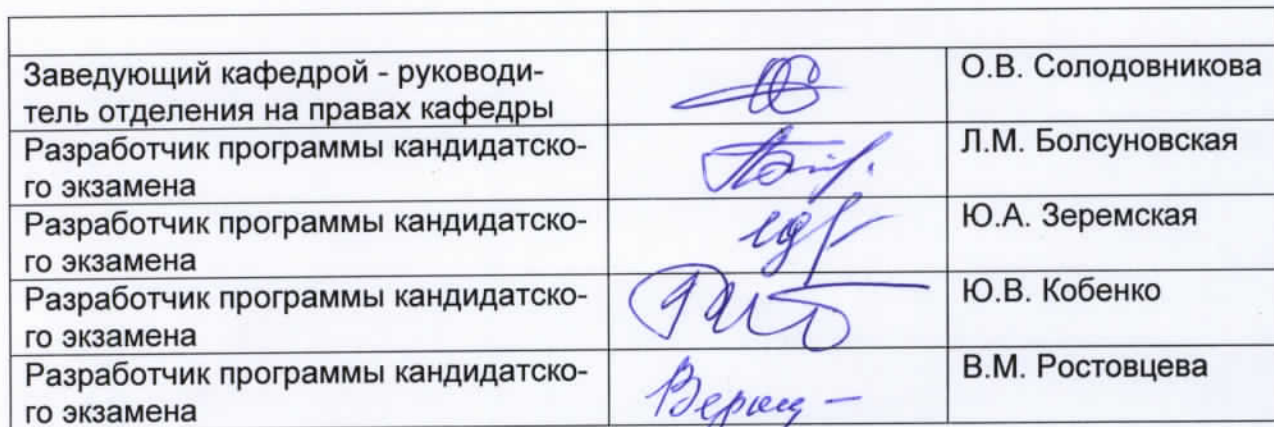 Заведующий кафедрой - руководи-
тель отделения на правах кафедры
О.В. Солодовникова
Разработчик программы кандидатско-
го экзамена
Л.М. Болсуновская
Разработчик программы кандидатско-
го экзамена
Ю.А. Зеремская
Разработчик программы кандидатско-
го экзамена
Ю.В. Кобенко
Разработчик программы кандидатско-
го экзамена
В.М. Ростовцева